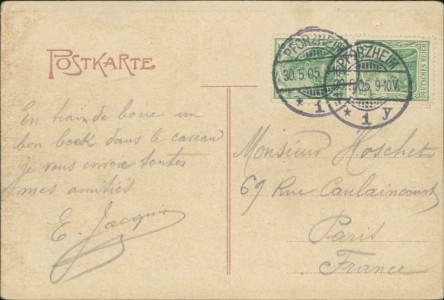 POSTKARTE
PFORZHEIM
30.5.05
* 1 y
PFORZHEIM
5.05. 9-10V.
* 1 y
DEUTSCHES REICH
En train de boire un
bon bock dans le caveau
je vous envoie toutes
mes amitiés
E. Jacquin
Monsieur Hoschet
67 Rue Caulaincourt
Paris
France